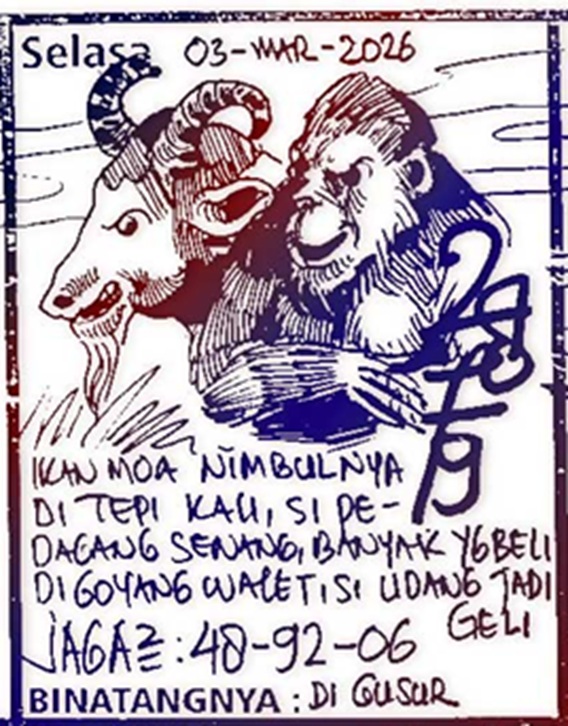 Selasa 03-MAR-2026
IKAN MOA NIMBULNYA
DI TEPI KALI, SI PE-
DAGANG SENANG, BANYAK YG BELI
DI GOYANG WALET, SI UDANG JADI
GELI
JAGA2 : 48-92-06
BINATANGNYA : DI GUSUR